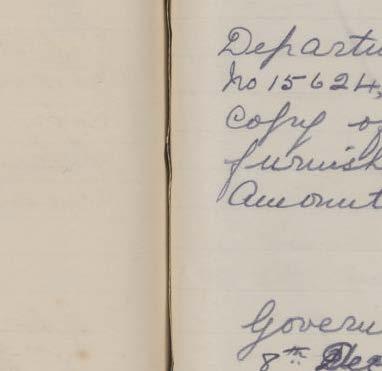 Departu
No 15624,
Copy of
furnish
Amount
Govern
8th Dec